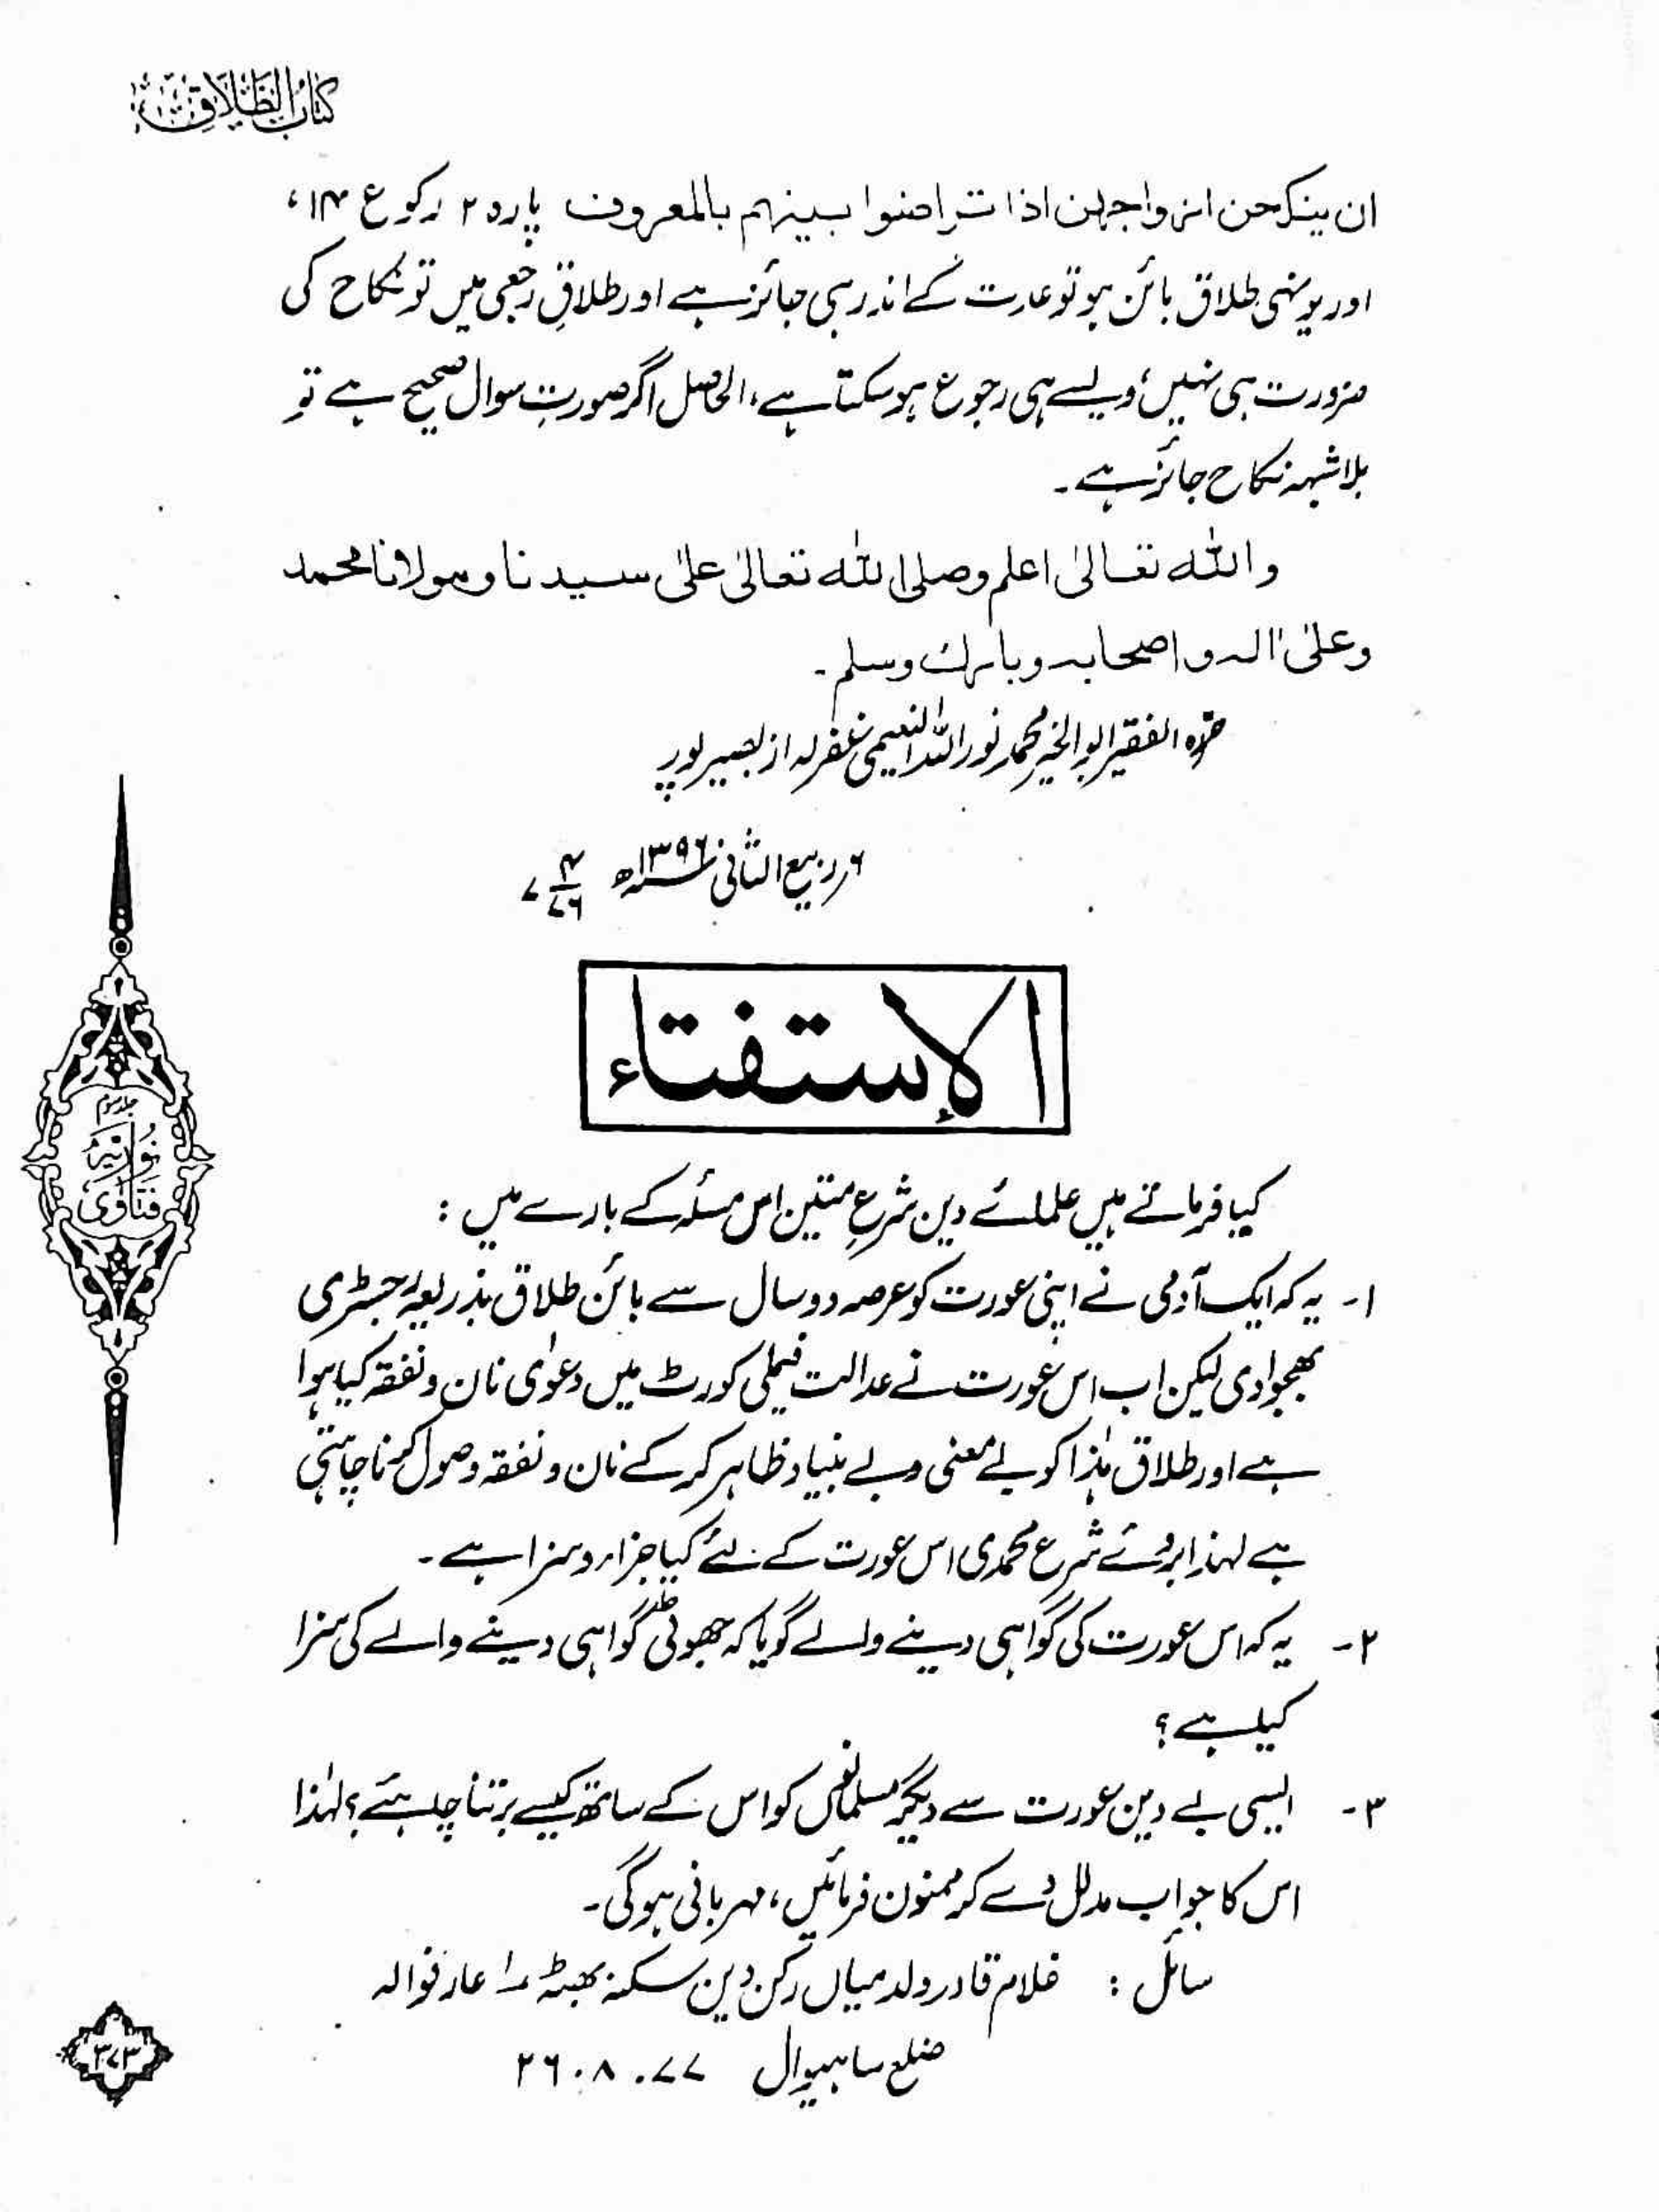 کتاب الطلاق
ان ینکحن ازواجہن اذا تراضوا بینہم بالمعروف پارہ ۲ رکوع ۱۴،
اور یونہی طلاق بائن ہو تو عدت کے اندر ہی جائز ہے اور طلاقِ رجعی میں تو نکاح کی
ضرورت ہی نہیں، ویسے ہی رجوع ہو سکتا ہے، الحاصل اگر صورتِ سوال صحیح ہے تو
بلاشبہہ نکاح جائز ہے۔
واللہ تعالیٰ اعلم وصلی اللہ تعالیٰ علیٰ سیدنا ومولانا محمد
وعلیٰ اٰلہ واصحابہ وبارک وسلم۔
حررہ الفقیر ابوالخیر محمد نور اللہ النعیمی غفرلہ از بصیرپور
۶ ربیع الثانی ۱۳۹۶ھ ۷-۴-۷۶
الإستفتاء
کیا فرماتے ہیں علمائے دین شرعِ متین اس مسئلہ کے بارے میں :
۱۔ یہ کہ ایک آدمی نے اپنی عورت کو عرصہ دو سال سے بائن طلاق بذریعہ رجسٹری
بھجوادی لیکن اب اس عورت نے عدالت فیملی کورٹ میں دعوٰی نان و نفقہ کیا ہوا
ہے اور طلاق ہٰذا کو بے معنی و بے بنیاد ظاہر کر کے نان و نفقہ وصول کرنا چاہتی
ہے لہٰذا بروئے شرع محمدی اس عورت کے لئے کیا جزا و سزا ہے۔
۲۔ یہ کہ اس عورت کی گواہی دینے والے گویا کہ جھوٹی گواہی دینے والے کی سزا
کیا ہے؟
۳۔ ایسی بے دین عورت سے دیگر مسلمانوں کو اس کے ساتھ کیسے برتنا چاہئے؟ لہٰذا
اس کا جواب مدلل دے کر ممنون فرمائیں، مہربانی ہوگی۔
سائل : غلام قادر ولد میاں رکن دین سکنہ بھٹہ ۱ عارفوالہ
ضلع ساہیوال ۲۶.۰۸.۷۷
جلد سوم
نوریہ
فتاوی
۳۷۳